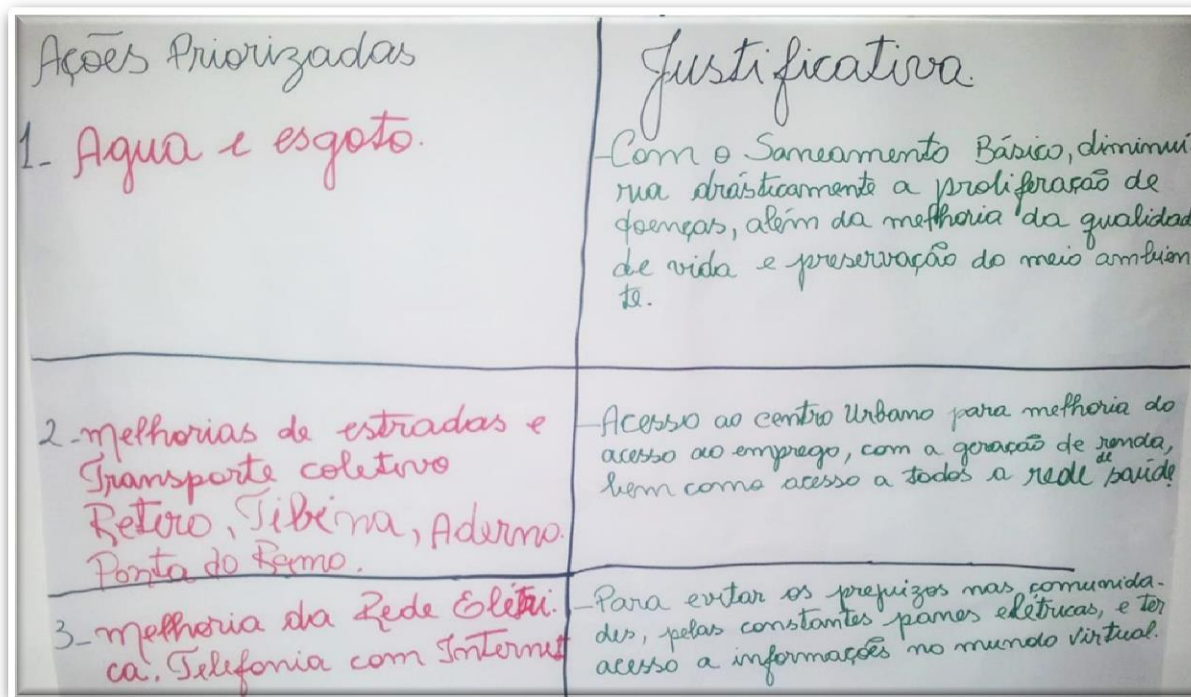 Ações Priorizadas
Justificativa.
1- Agua e esgoto.
- Com o Saneamento Básico, diminui
ria drásticamente a proliferação de
doenças, além da melhoria da qualidad
de vida e preservação do meio ambien
te.
2- melhorias de estradas e
Transporte coletivo
Retiro, Tibina, Aderno.
Ponta do Ramo.
- Acesso ao centro Urbano para melhoria do
acesso ao emprego, com a geração de renda,
bem como acesso a todos a rede de saúde
3- melhoria da Rede Elétri.
ca. Telefonia com Internet
- Para evitar os prejuizos nas comunida-
des, pelas constantes panes elétricas, e ter
acesso a informações no mundo virtual.